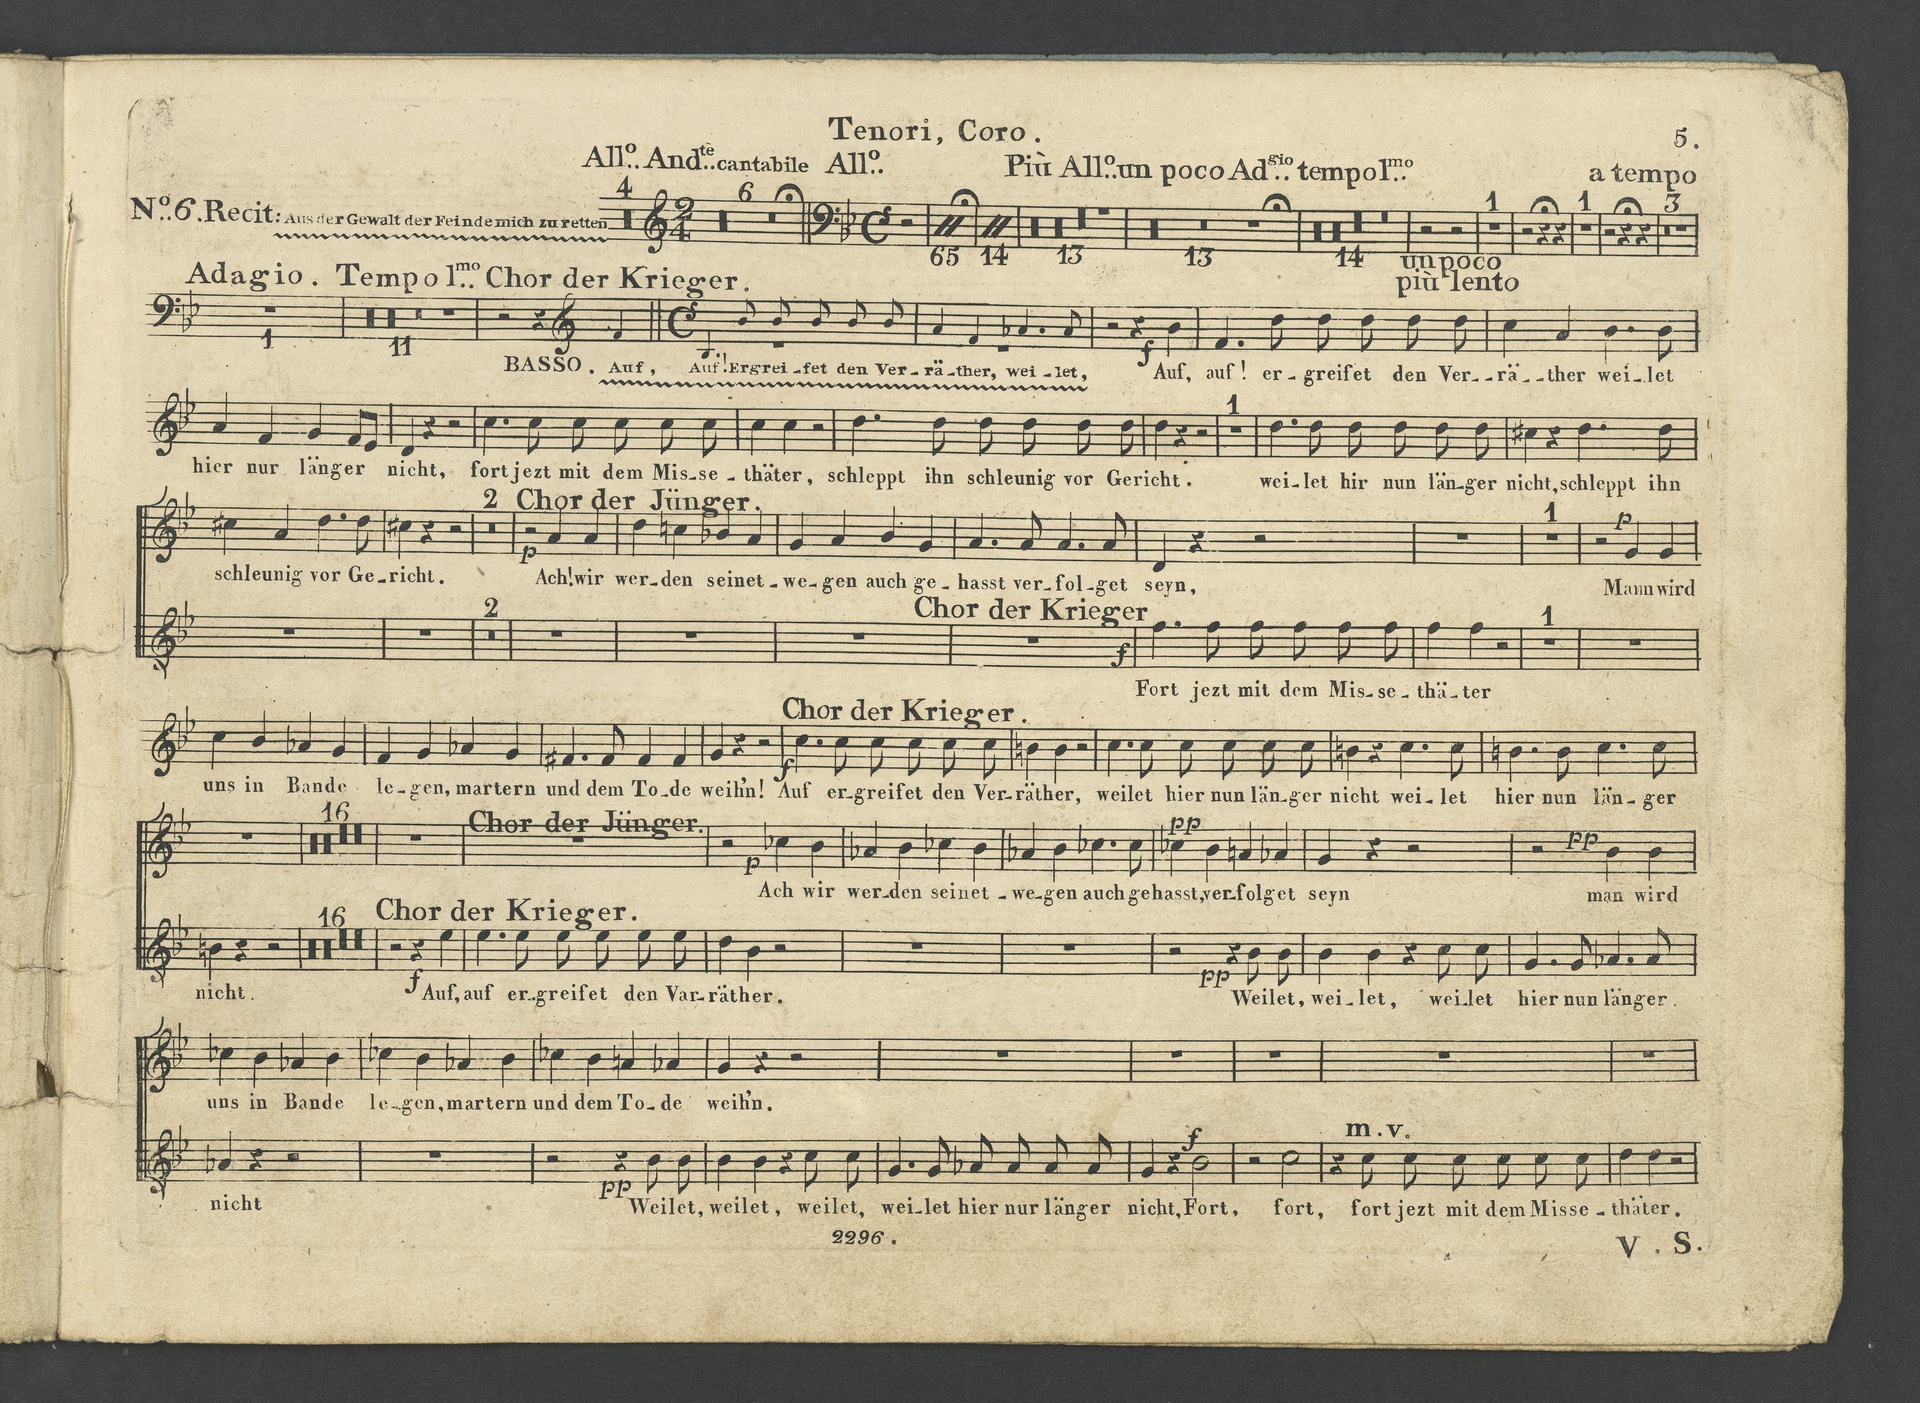 Tenori, Coro.
5.
All.o And.te cantabile All.o Più All.o un poco Ad.gio tempo I.mo a tempo
4 6 1 1 3
N.o 6. Recit: Aus der Gewalt der Feinde mich zu retten
65 14 13 13 14 un poco
più lento
Adagio. Tempo I.mo Chor der Krieger.
1 11
BASSO. Auf, Auf! Ergrei-fet den Ver-rä-ther, wei-let, f Auf, auf! er-greifet den Ver--rä--ther wei-let
1
hier nur länger nicht, fort jezt mit dem Mis-se-thäter, schleppt ihn schleunig vor Gericht. wei-let hir nun län-ger nicht, schleppt ihn
2 Chor der Jünger.
1 p
p
schleunig vor Ge-richt. Ach! wir wer-den seinet-we-gen auch ge-hasst ver-fol-get seyn, Mann wird
2 Chor der Krieger 1
f
Fort jezt mit dem Mis-se-thä-ter
Chor der Krieger.
f
uns in Bande le-gen, martern und dem To-de weih'n! Auf er-greifet den Ver-räther, weilet hier nun län-ger nicht wei-let hier nun län-ger
16 Chor der Jünger. pp pp
p
Ach wir wer-den seinet-we-gen auch gehasst, ver-folget seyn man wird
16 Chor der Krieger.
f pp
nicht. Auf, auf er-greifet den Var-räther. Weilet, wei-let, wei-let hier nun länger.
uns in Bande le-gen, martern und dem To-de weih'n.
f m.v.
pp
nicht Weilet, weilet, weilet, wei-let hier nur länger nicht, Fort, fort, fort jezt mit dem Misse-thäter.
2296.
V. S.